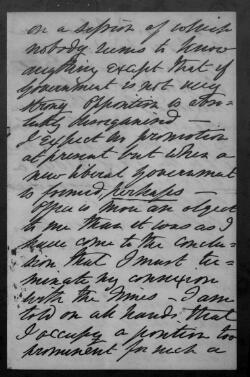 on a session of which
nobody seems to know
anything except that if
government is not very
strong opposition is abso-
lutely disorganised —
I expect no promotion
at present but when a
new liberal government
is formed perhaps —
Office is more an object
to me than it was as I
have come to the conclu-
sion that I must ter-
minate my connexion
with the Times — I am
told on all hands that
I occupy a position too
prominent for such a